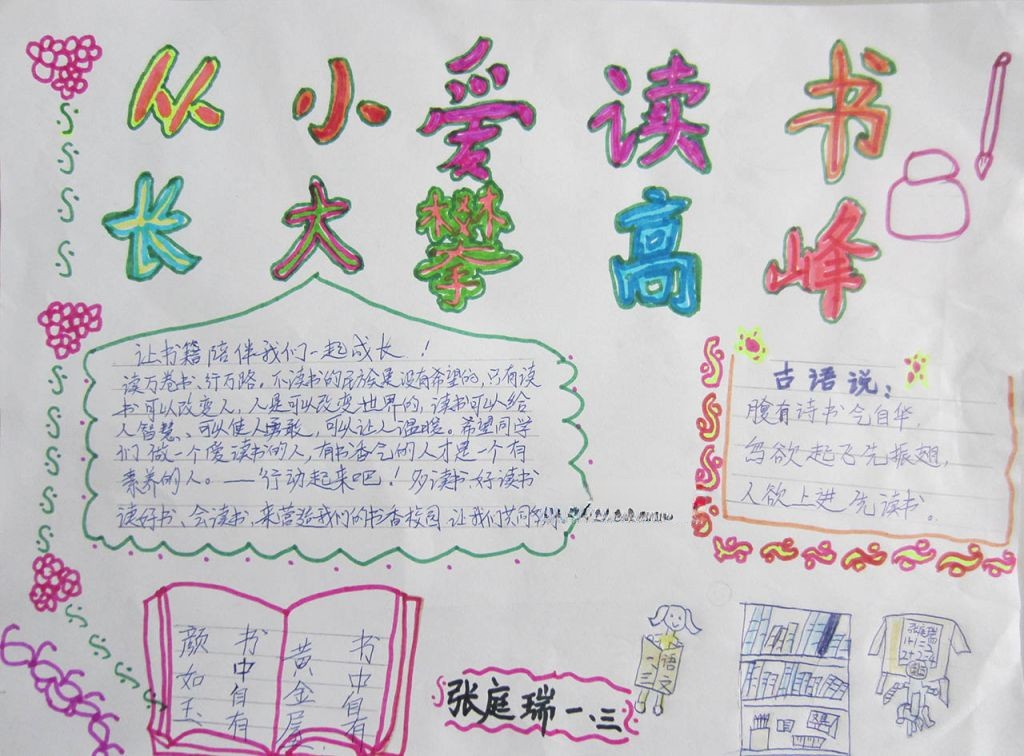 从小爱读书
长大攀高峰
让书籍陪伴我们一起成长！
读万卷书、行万路。不读书的民族是没有希望的，只有读
书可以改变人，人是可以改变世界的，读书可以给
人智慧、可以使人勇敢，可以让人温暖。希望同学
们做一个爱读书的人，有书香气的人才是一个有
素养的人。——行动起来吧！多读书、好读书
读好书、会读书、来营造我们的书香校园，让我们共同
古语说：
腹有诗书气自华，
鸟欲起飞先振翅，
人欲上进先读书。
书中自有
黄金屋，
书中自有
颜如玉
张庭瑞一.三
语文
一三
张庭瑞